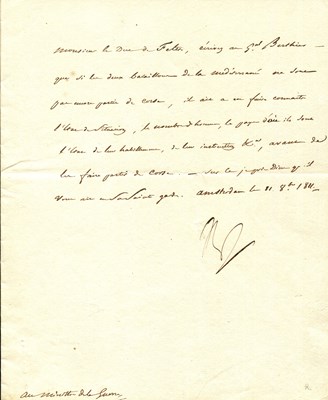 Monsieur le Duc de Feltre, écrivez au Gal Berthier
que si les deux bataillons de la méditerranée ne sont
pas encore partis de corse, il ait à en faire connaitre
l'état de situation, le nombre d'hommes, le pays d'où ils sont
l'état de leur habillement, de leur instruction &a, avant de
les faire partir de Corse. — Sur ce je prie Dieu qu'il
vous ait en sa sainte garde. Amsterdam le 11 8bre 1811
au Ministre de la Guerre